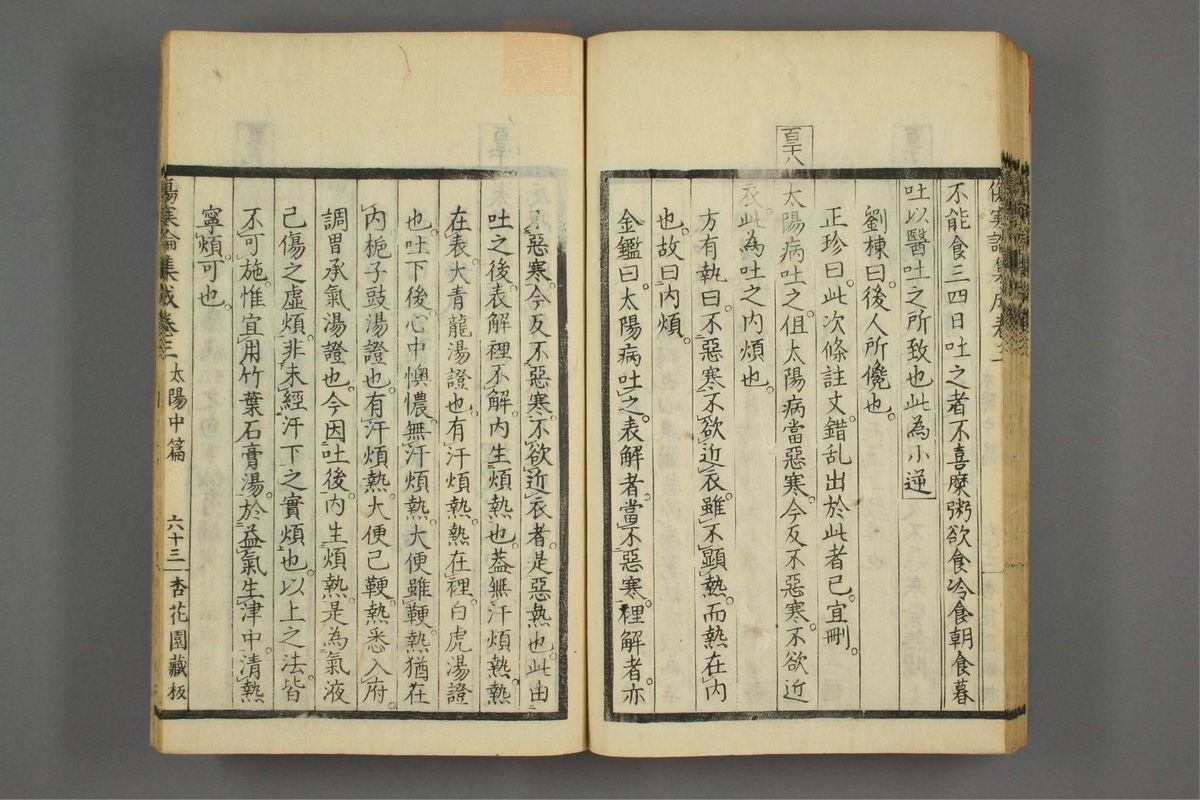 傷寒論集成卷之二
不能食三四日吐之者不喜糜粥欲食冷食朝食暮
吐以醫吐之所致也此為小逆
劉棟曰。後人所儳也。
正珍曰。此次條註文。錯乱出於此者已。宜刪。
百十八
太陽病吐之。但太陽病當惡寒。今反不惡寒。不欲近
衣。此為吐之内煩也。
方有執曰。不惡寒。不欲近衣。雖不顕熱。而熱在内
也。故曰内煩。
金鑑曰。太陽病吐之。表解者。當不惡寒。裡解者。亦
不惡寒。今反不惡寒。不欲近衣者。是惡熱也。此由
吐之後。表解裡不解。内生煩熱也。蓋無汗煩熱。熱
在表。大青龍湯證也。有汗煩熱。熱在裡。白虎湯證
也。吐下後。心中懊憹。無汗煩熱。大便雖鞕。熱猶在
内。梔子豉湯證也。有汗煩熱。大便已鞕。熱悉入府。
調胃承氣湯證也。今因吐後内生煩熱。是為氣液
已傷之虛煩。非未經汗下之實煩也。以上之法。皆
不可施。惟宜用竹葉石膏湯。於益氣生津中。清熱
寧煩可也。
傷寒論集成卷三 太陽中篇 六十三 杏花園藏板